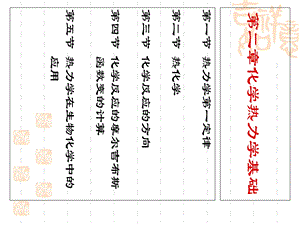 第二章化学热力学基础
第一节 热力学第一定律
第二节 热化学
第三节 化学反应的方向
第四节 化学反应的摩尔吉布斯
函数变的计算
第五节 热力学在生物化学中的
应用